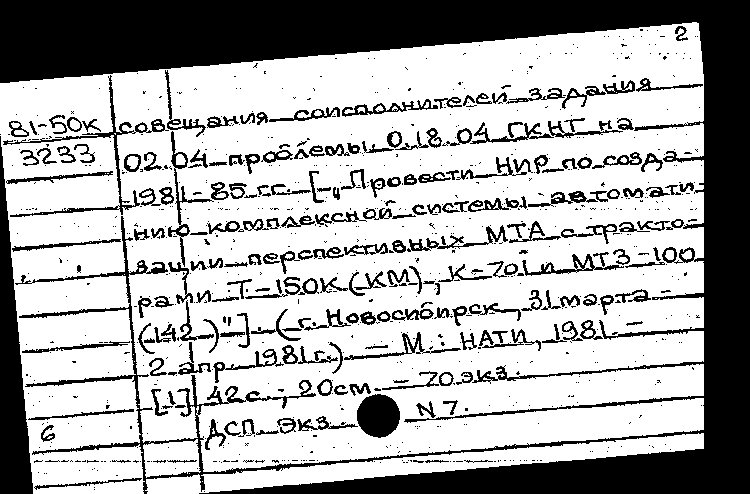 2
81-50к совещания соисполнителей задания
3233 02.04 проблемы 0.18.04 ГКНТ на
1981-85 г.г. [„Провести НИР по созда-
нию комплексной системы автомати-
зации перспективных МТА с тракто-
рами Т-150К (КМ), К-701 и МТЗ-100
(142)"]. (г. Новосибирск, 31 марта -
2 апр. 1981 г.) — М.: НАТИ, 1981 —
[1], 42 с.; 20 см. — 70 экз.
6 ДСП. Экз. N 7.